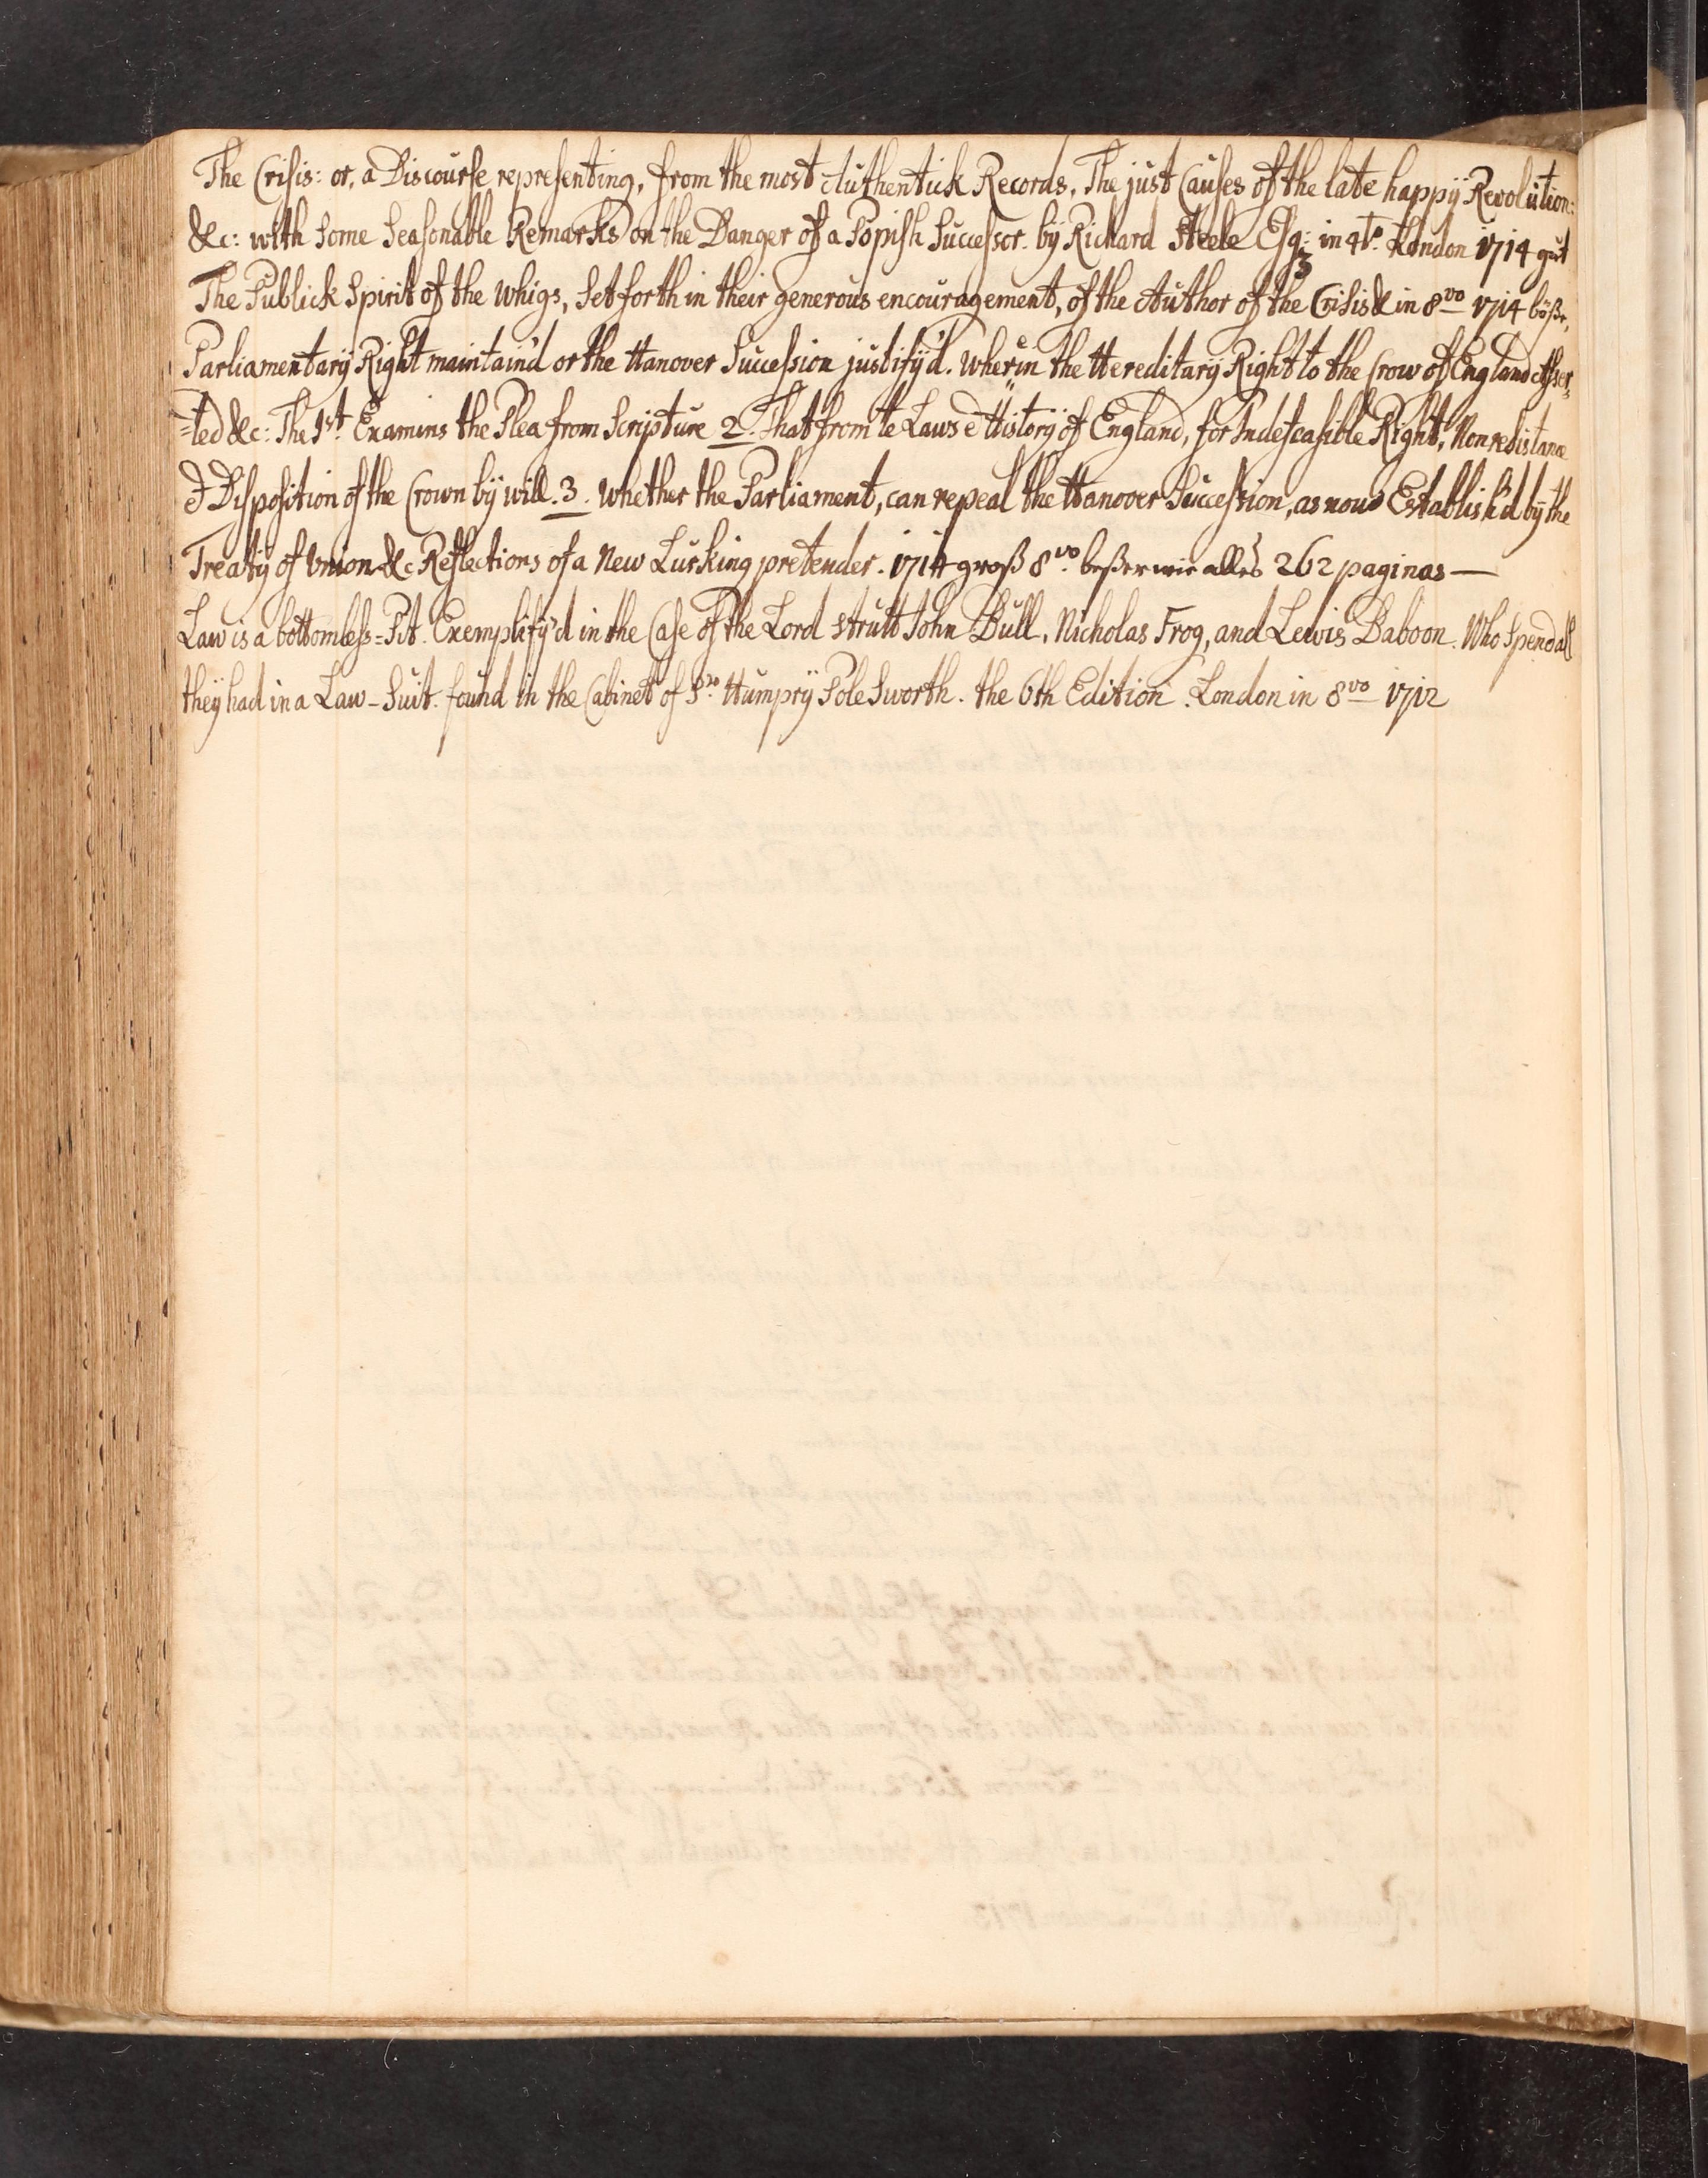 The Crisis: or, a Discourse representing, from the most Authentick Records, The just Causes of the late happÿ Revolution:
&c: with Some Seasonable Remarks on the Danger of a Popish Successor. bÿ Richard Steele Esq: in 4to. London 1714 gut
The Publick Spirit of the Whigs, Set forth in their generous encouragement, of the Author of the Crisis & in 8vo 1714 böße,
Parliamentarÿ Right maintain'd or the Hanover Succession justifÿ'd. Wherin the Hereditarÿ Right to the Crow of England Asser=
=ted &c: The 1st. Examins the Plea from Scripture 2. That from te Laws & Historÿ of England, for Indefeasible Right, Nonresistance
& Disposition of the Crown bÿ will. 3. Whether the Parliament, can repeal the Hanover Succession, as now Establish'd bÿ the
Treatÿ of Union &c Reflections of a New Lurking pretender. 1714 groß 8vo. beßer wie alles 262 paginas —
Law is a bottomless=Pit. Exemplifÿ'd in the Case of the Lord Strutt John Bull, Nicholas Frog, and Lewis Baboon. Who Spend all
theÿ had in a Law-Suit. found in the Cabinet of Sr. Humprÿ Polesworth. the 6th Edition. London in 8vo 1712